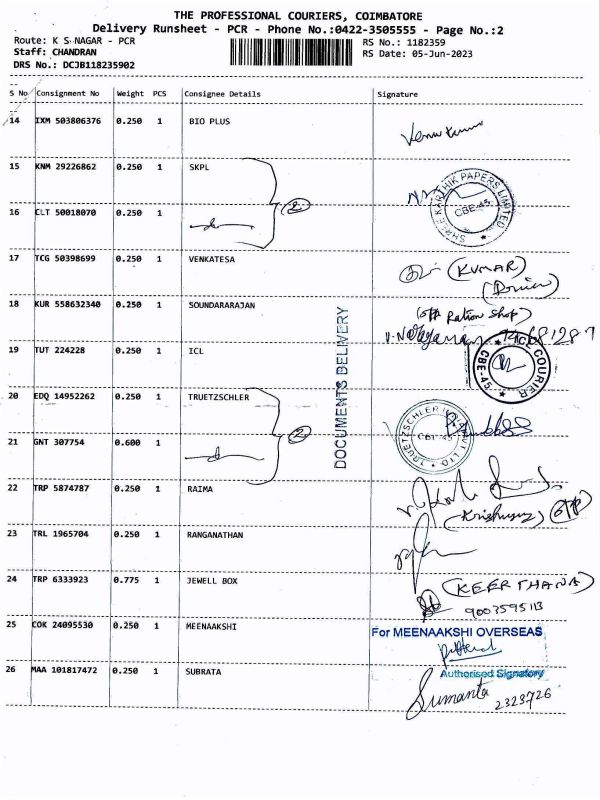 THE PROFESSIONAL COURIERS, COIMBATORE
Delivery Runsheet - PCR - Phone No.:0422-3505555 - Page No.:2
Route: K S NAGAR - PCR
RS No.: 1182359
Staff: CHANDRAN
RS Date: 05-Jun-2023
DRS No.: DCJB118235902
S No Consignment No Weight PCS Consignee Details Signature
14 IXM 503806376 0.250 1 BIO PLUS
15 KNM 29226862 0.250 1 SKPL
SHREE KARTHIK PAPERS LIMITED CBE-45
16 CLT 50018070 0.250 1 2
17 TCG 50398699 0.250 1 VENKATESA (KUMAR)
18 KUR 558632340 0.250 1 SOUNDARARAJAN (Opp Ration Shop)
DOCUMENTS DELIVERY
19 TUT 224228 0.250 1 ICL
ICL COURIER CBE-45
20 EDQ 14952262 0.250 1 TRUETZSCHLER
21 GNT 307754 0.600 1 2
22 TRP 5874787 0.250 1 RAIMA
23 TRL 1965704 0.250 1 RANGANATHAN
24 TRP 6333923 0.775 1 JEWELL BOX (KEERTHANA)
25 COK 24095530 0.250 1 MEENAAKSHI
For MEENAAKSHI OVERSEAS
Authorised Signatory
26 MAA 101817472 0.250 1 SUBRATA Sumanta
2323726